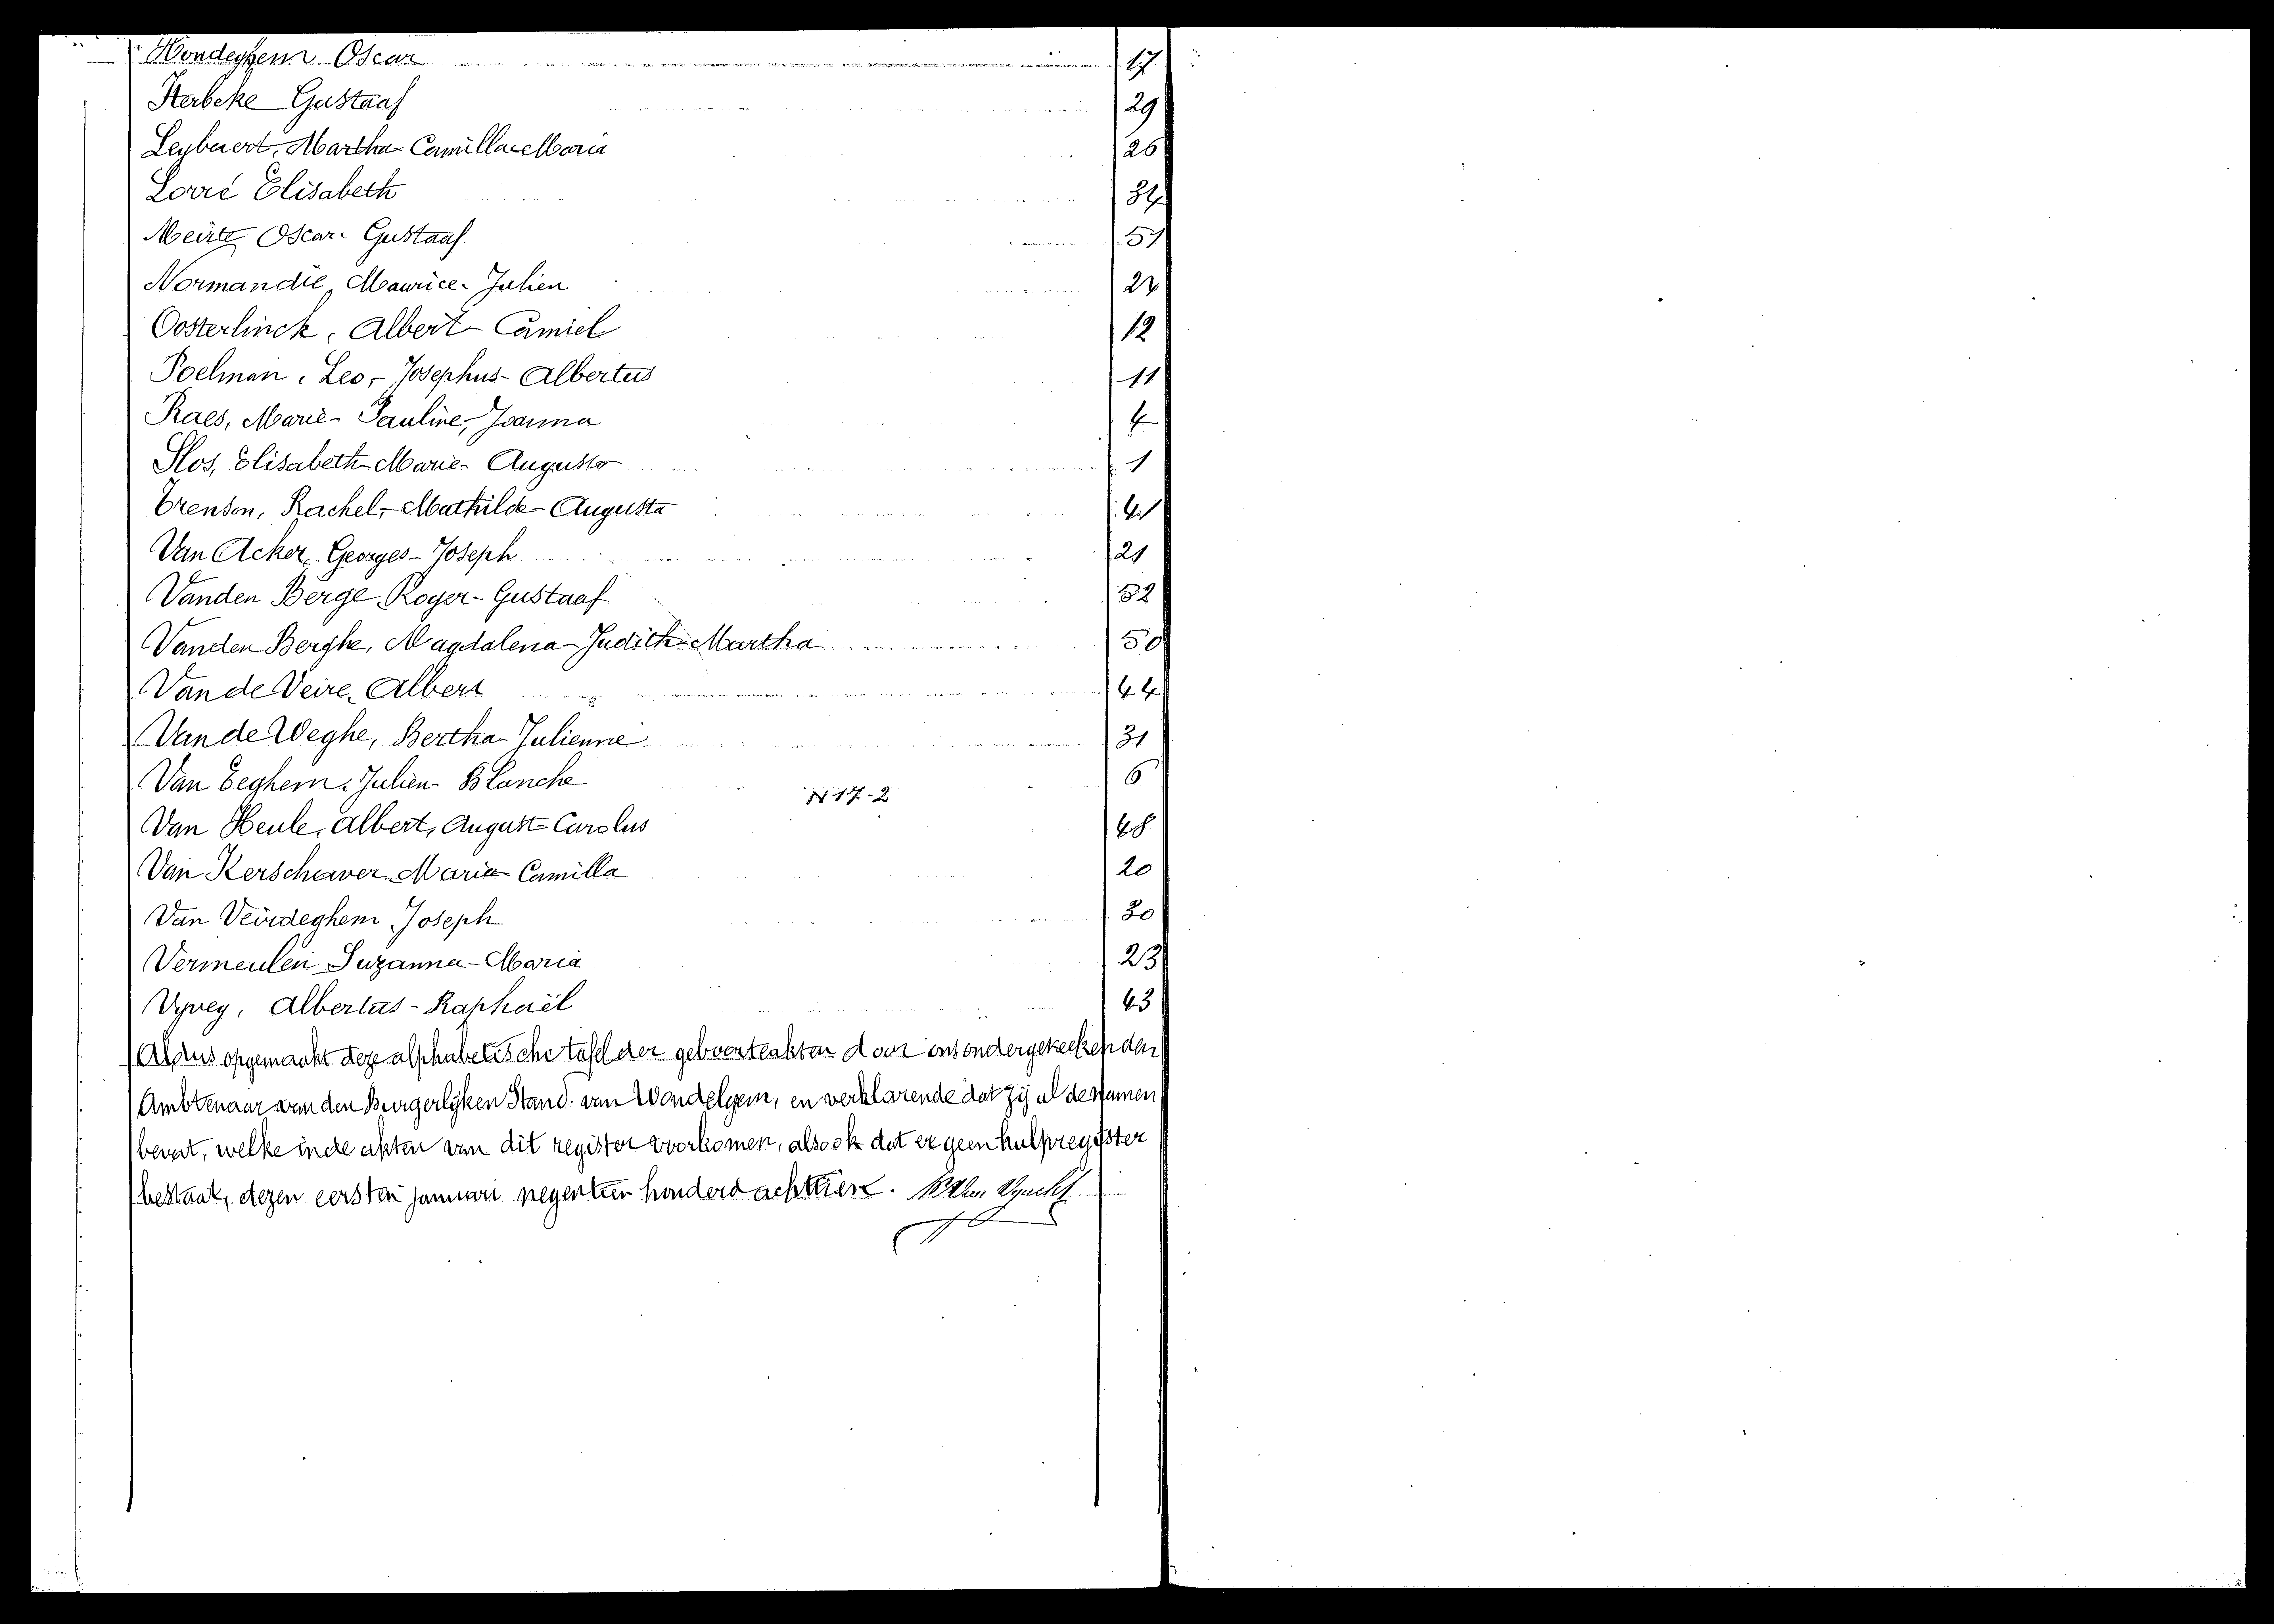 Hondeghem Oscar 17
Herbeke Gustaaf 29
Leybaert, Martha Camilla Maria 26
Lorré Elisabeth 34
Meirte Oscar Gustaaf. 51
Normandie, Maurice Julien
Oosterlinck, Albert Camiel 12
Poelman, Leo, - Josephus - Albertus 11
Raes, Marie - Pauline, Joanna 4
Slos, Elisabeth Marie - Augusta 1
Trenson, Rachel, - Mathilde - Augusta 41
Van Acker, Georges - Joseph 21
Vanden Berge, Roger - Gustaaf
Vanden Berghe, Magdalena - Judith - Martha 50
Van de Veire, Albert 44
Van de Weghe, Bertha - Julienne 31
Van Eeghem, Julien - Blanche 6
N 17-2
Van Heule, Albert, August - Carolus 48
Van Kerschaver Maria Camilla 20
Van Veirdeghem, Joseph 30
Vermeulen Suzanna - Maria 23
Vyvey, Albertus - Raphaël 43
Aldus opgemaakt deze alphabetische tafel der geboorteakten door ons ondergeteekenden
Ambtenaar van den Burgerlijken Stand. van Wondelgem, en verklarende dat zij al de namen
bevat, welke in de akten van dit register voorkomen, alsook dat er geen hulpregister
bestaat, dezen eersten januari negentien honderd achttien.